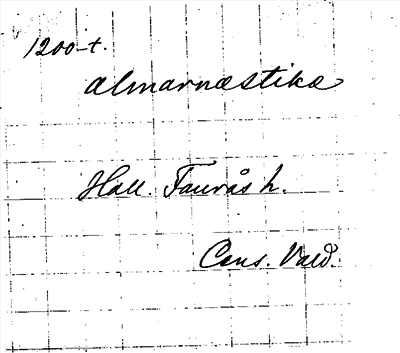 1200-t.
almarnæstikæ
Hall. Faurås h.
Cons. Vald.